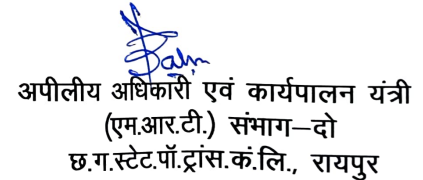 अपीलीय अधिकारी एवं कार्यपालन यंत्री
(एम.आर.टी.) संभाग–दो
छ.ग.स्टेट.पॉ.ट्रांस.कं.लि., रायपुर